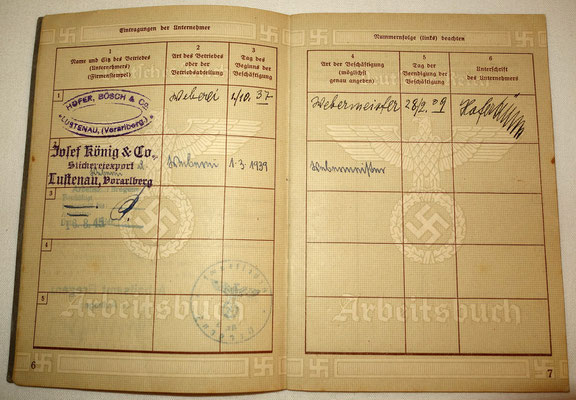 Eintragungen der Unternehmer
1
Name und Sitz des Betriebes
(Unternehmers)
(Firmenstempel)
2
Art des Betriebes
oder der
Betriebsabteilung
3
Tag des
Beginns der
Beschäftigung
1
HOFER, BÖSCH & CO.
LUSTENAU, (Vorarlberg.)
Weberei
1/10. 37
Josef König & Co.
Stickereiexport
Weberei
Lustenau, Vorarlberg
Weberei
1. 3. 1939
3
4
5
Arbeitsbuch
6
Nummernfolge (links) beachten
4
Art der Beschäftigung
(möglichst
genau angeben)
5
Tag der
Beendigung der
Beschäftigung
6
Unterschrift
des Unternehmers
Webermeister
28/2. 39
Webermeister
Arbeitsbuch
7